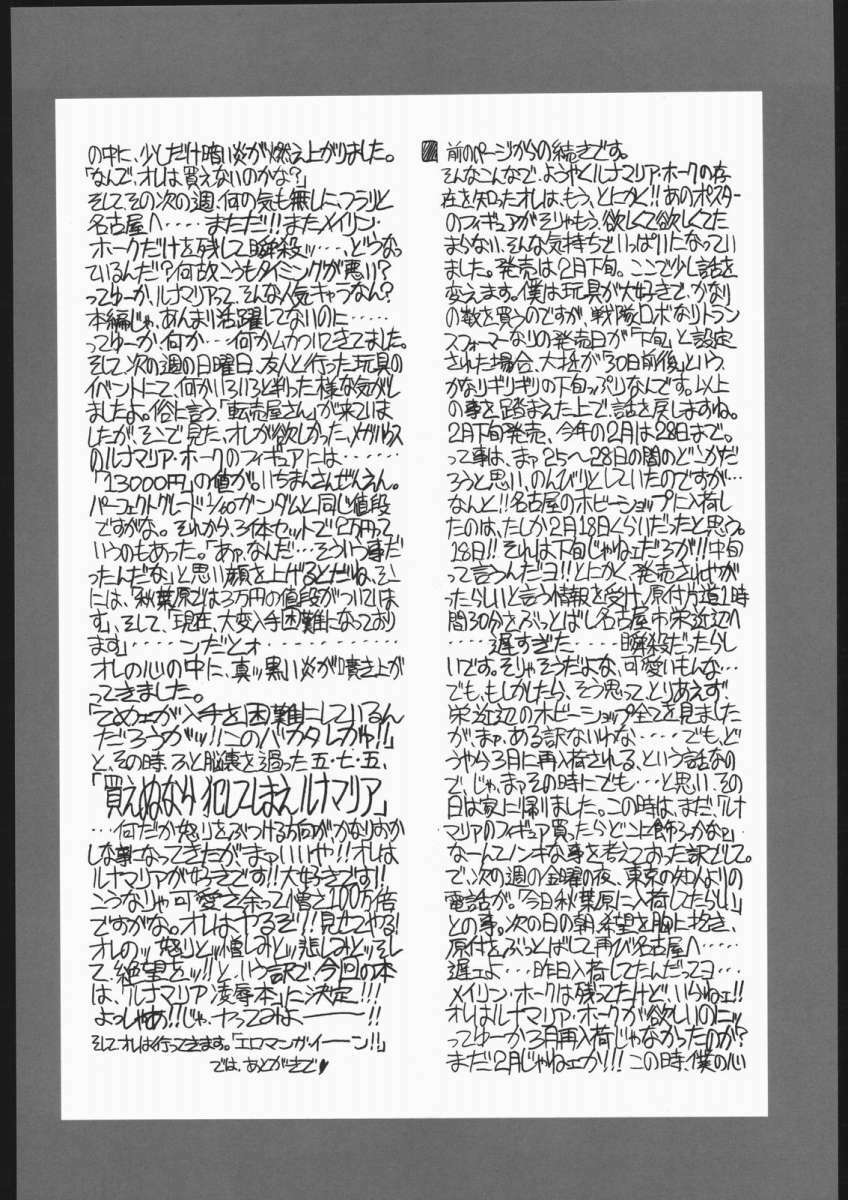 前のページからの続きです。
そんなこんなで、ようやくルナマリア・ホークの存
在を知ったオレは、もう、とにかく!!あのポスター
のフィギュアがそりゃもう、欲しくて欲しくてた
まらない、そんな気持ちでいっぱいになってい
ました。発売は2月下旬。ここで少し話を
変えます。僕は玩具が大好きで、かなり
の数を買うのですが、戦隊ロボなりトラン
スフォーマーなりの発売日が「下旬」と設定
された場合、大抵が「30日前後」という、
かなりギリギリの下旬っぷりなんです。以上
の事を踏まえた上で、話を戻しますね。
2月下旬発売、今年の2月は28日まで。
って事は、まァ25〜28日の間のどっかだ
ろうと思い、のんびりとしていたのですが…
なんと!!名古屋のホビーショップに入荷し
たのは、たしか2月18日くらいだったと思う。
18日!!それは下旬じゃねェだろが!!中旬
って言うんだヨ!!とにかく、発売されやが
ったらしいと言う情報を受け、原付で片道1時
間30分をぶっとばし名古屋市栄近辺へ
・・・・・遅すぎた・・・・・瞬殺だったらし
いです。そりゃそうだよな、可愛いもんな…
でも、もしかしたら、そう思って、とりあえず、
栄近辺のホビーショップ全てを見ました
が、まァ、ある訳ないわな・・・・・でも、ど
うやら3月に再入荷される、という話なの
で、じゃ、まァその時にでも…と思い、その
日は家に帰りました。この時は、まだ、「ルナ
マリアのフィギュア買ったらどこに飾ろっかなァ」
なーんてノンキな事を考えておった訳でして。
で、次の週の金曜の夜、東京の知人よりの
電話が。「今日秋葉原に入荷したらしい」
との事。次の日の朝、希望を胸に抱き、
原付をぶっとばして再び名古屋へ・・・・・
遅ェよ…昨日入荷してたんだってヨ…
メイリン・ホークは残ってたけど、いらねェ!!
オレはルナマリア・ホークが欲しいのにッ
ってゆーか3月再入荷じゃなかったのか?
まだ2月じゃねェか!!!この時、僕の心
の中に、少しだけ暗い炎が燃え上がりました。
「なんで、オレは買えないのかな?」
そしてその次の週、何の気も無しに、フラリと
名古屋へ・・・・・まただ!!またメイリン・
ホークだけを残して瞬殺ッ…、どうなっ
ているんだ!?何故こうもタイミングが悪い?
ってゆーか、ルナマリアって、そんな人気キャラなん?
本編じゃ、あんまり活躍してないのに……
ってゆーか何か…何かムカついてきてました。
そして、次の週の日曜日、友人と行った玩具の
イベントにて、何かいろいろと判った様な気がし
ましたよ。俗に言う、「転売屋さん」が来ていま
したが、そこで見た、オレが欲しかった、メガハウス
のルナマリア・ホークのフィギュアには・・・・・・
「13000円」の値が。いちまんさんぜんえん。
パーフェクトグレード1/60ガンダムと同じ値段
ですがな。それから、3体セットで2万円って
いうのもあった。「あァ、なんだ…そういう事だ
ったんだな」と思い顔を上げるとだね、そこ
には、「秋葉原では3万円の値段がついていま
す」、そして、「現在、大変入手困難になっており
ます」・・・・・ンだとォ・・・・・・・・・・・・・
オレの心の中に、真ッ黒い炎が噴き上が
ってきました。
「てめェが入手を困難にしているん
だろうがッ!!このバカタレがァ!!」
と、その時、ふと脳裏を過った五・七・五、
「買えぬなら 犯してしまえ ルナマリア」
…何だか怒りをぶつける方向がかなりおか
しな事になってきたが、まァいいや!!オレは
ルナマリアが好きです!!大好きです!!
こうなりゃ可愛さ余って憎さ100万倍
ですがな。オレはやるぞ!!見せてやる!
オレのッ怒りとッ憎しみとッ悲しみとッそし
て、絶望をッ!!と、いう訳で、今回の本
は、「ルナマリア凌辱本」に決定!!!
よっしゃあ!!!じゃ、ヤってみよーーー!!
そしてオレは行ってきます。「エロマンガ・イーーン!!」
では、あとがきで♥